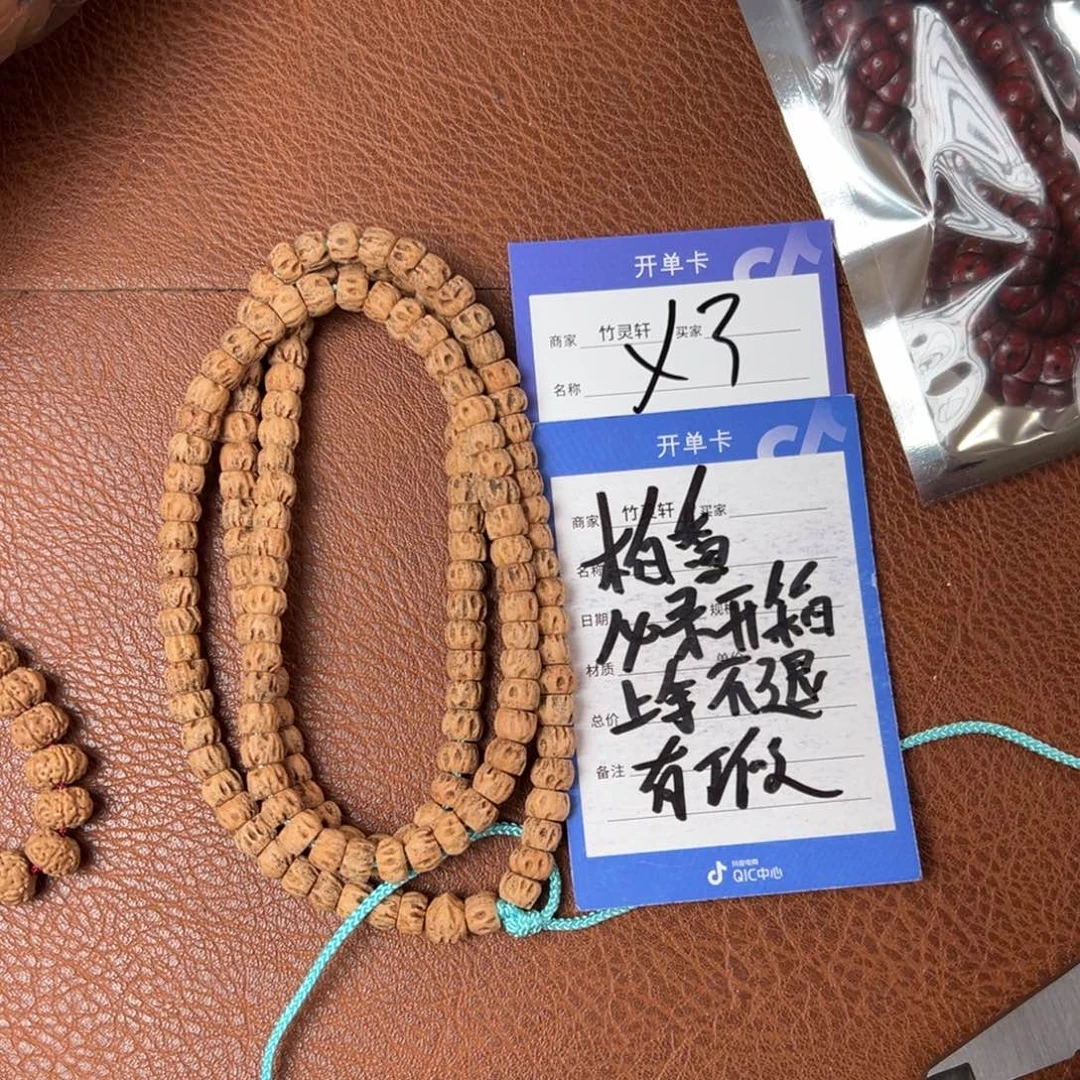 开单卡
商家 竹灵轩 买家
X3
名称
开单卡
商家 竹灵轩 买家
名称
拍查
日期 规格
必录开箱
材质 单价
上拿不退
总价
有瑕
备注
抖音电商
QIC中心